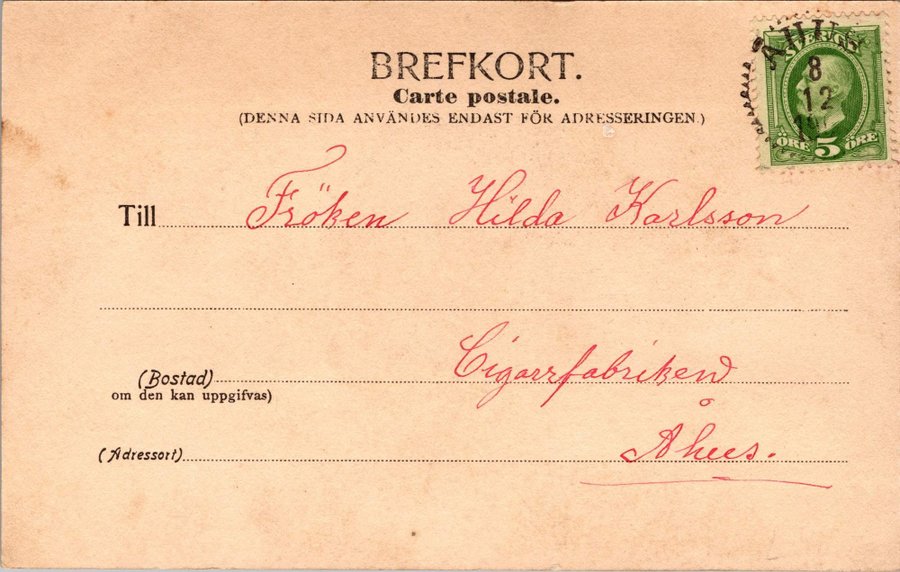 BREFKORT.
Carte postale.
(DENNA SIDA ANVÄNDES ENDAST FÖR ADRESSERINGEN.)
SVERIGE
8
12
ÖRE 5 ÖRE
Till Fröken Hilda Karlsson
(Bostad) Cigarrfabriken
om den kan uppgifvas)
(Adressort) Åhus.